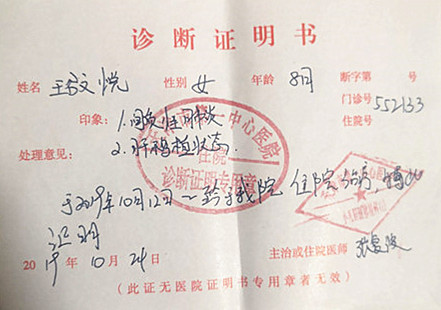 诊断证明书
姓名 王文悦 性别 女 年龄 8月 断字第 号
门诊号 552133
住院号
印象: 1.间质性肺炎
处理意见: 2.肝移植状态
中心医院
住院
诊断证明专用章
于2019年10月12日一 于我院住院治疗 特此
证明
2019年10月24日 主治或住院医师
(此证无医院证明书专用章者无效)